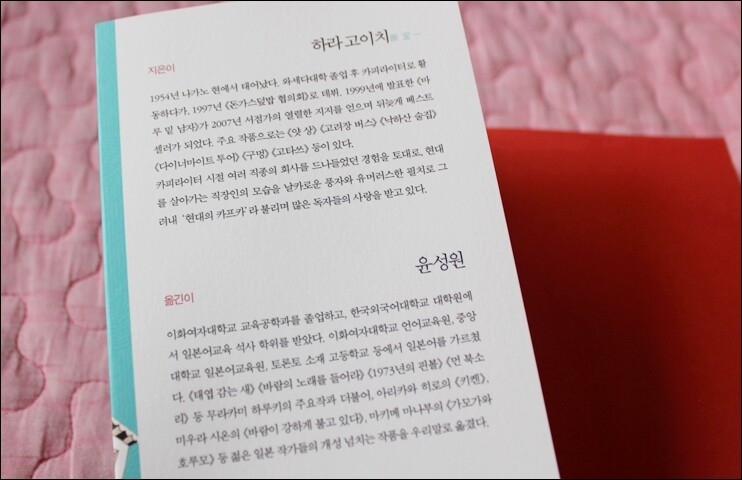 하라 고이치
지은이
1954년 나가노 현에서 태어났다. 와세다대학 졸업 후 카피라이터로 활
동하다가, 1997년 《돈가스덮밥 협의회》로 데뷔. 1999년에 발표한 《마
루 밑 남자》가 2007년 서점가의 열렬한 지지를 얻으며 뒤늦게 베스트
셀러가 되었다. 주요 작품으로는 《얏상》 《고려장 버스》 《낙하산 술집》
《다이너마이트 투어》 《구멍》 《고타쓰》 등이 있다.
카피라이터 시절 여러 직종의 회사를 드나들었던 경험을 토대로, 현대
를 살아가는 직장인의 모습을 날카로운 풍자와 유머러스한 필치로 그
려내 ‘현대의 카프카’라 불리며 많은 독자들의 사랑을 받고 있다.
윤성원
옮긴이
이화여자대학교 교육공학과를 졸업하고, 한국외국어대학교 대학원에
서 일본어교육 석사 학위를 받았다. 이화여자대학교 언어교육원, 중앙
대학교 일본어교육원, 토론토 소재 고등학교 등에서 일본어를 가르쳤
다. 《태엽 감는 새》 《바람의 노래를 들어라》 《1973년의 핀볼》 《먼 북소
리》 등 무라카미 하루키의 주요작과 더불어, 아리카와 히로의 《키켄》,
미우라 시온의 《바람이 강하게 불고 있다》, 마키메 마나부의 《가모가와
호루모》 등 젊은 일본 작가들의 개성 넘치는 작품을 우리말로 옮겼다.